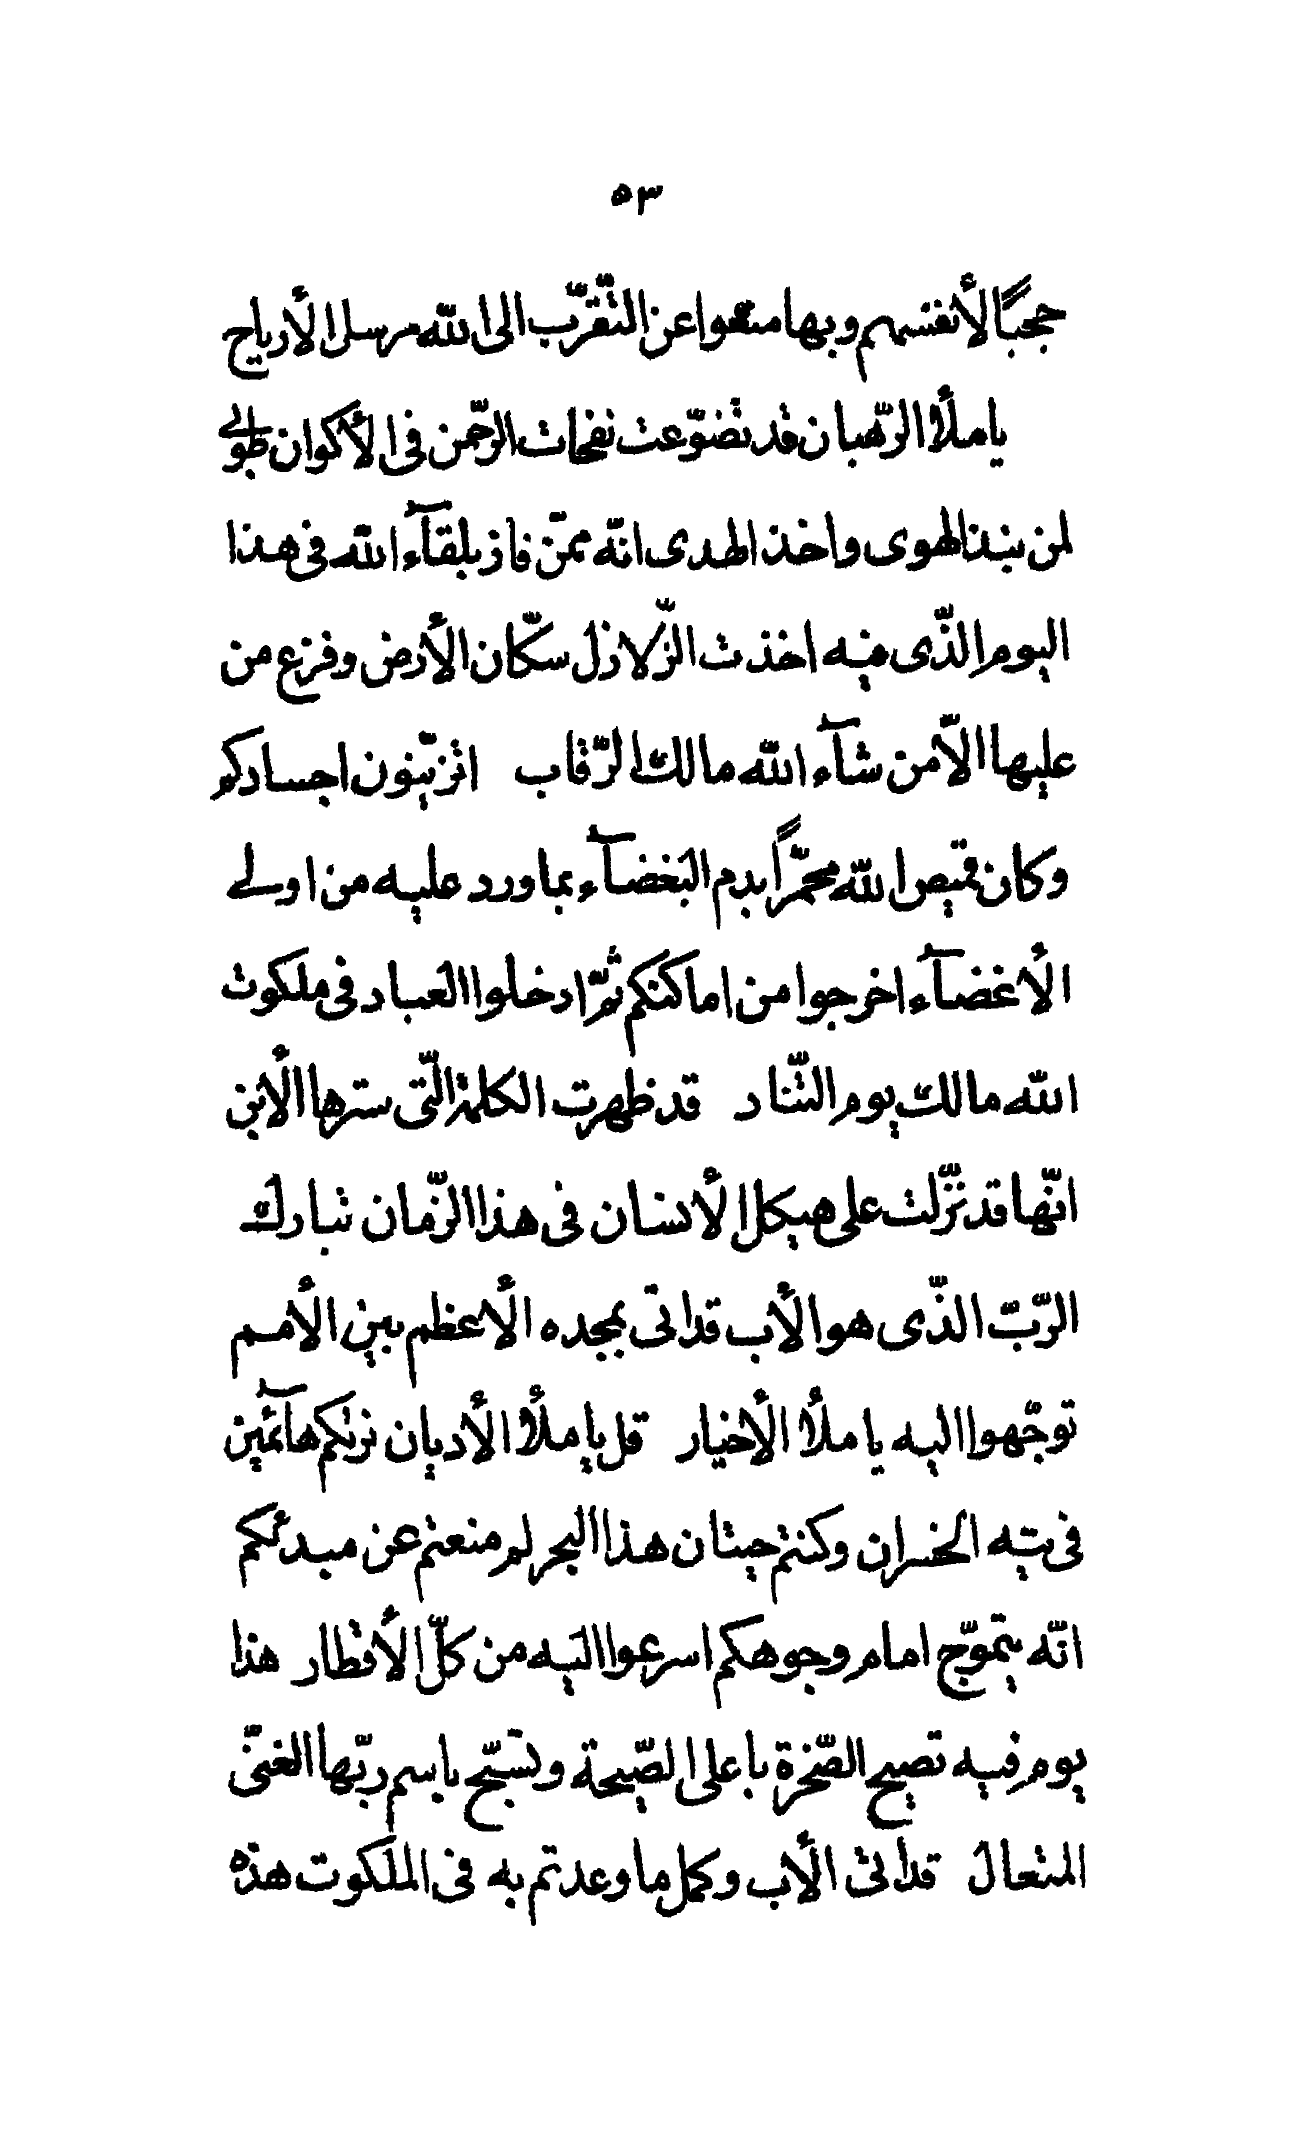 ٥٣
حجبًا لأنفسهم وبها منعوا عن التّقرّب الى الله مرسل الأرياح
يا ملأ الرّهبان قد تضوّعت نفحات الرّحمن فى الأكوان طوبى
لمن نبذ الهوى واخذ الهدى انّه ممّن فاز بلقآء الله فى هذا
اليوم الّذى فيه اخذت الزّلازل سكّان الأرض وفزع من
عليها الّا من شآء الله مالك الرّقاب اتزيّنون اجسادكم
وكان قميص الله محمّرًا بدم البغضآء بما ورد عليه من اولى
الأغضآء اخرجوا من اماكنكم ثمّ ادخلوا العباد فى ملكوت
الله مالك يوم التّناد قد ظهرت الكلمة الّتى سترها الأبن
انّها قد نزّلت على هيكل الأنسان فى هذا الزّمان تبارك
الرّبّ الّذى هو الأب قد اتى بمجده الأعظم بين الأمم
توجّهوا اليه يا ملأ الأخيار قل يا ملأ الأديان نريكم هآئمين
فى تيه الخسران وكنتم حيتان هذا البحر لم منعتم عن مبدئكم
انّه يتموّج امام وجوهكم اسرعوا اليه من كلّ الأقطار هذا
يوم فيه تصيح الصّخرة بأعلى الصّيحة وتسبّح باسم ربّها الغنىّ
المتعال قد اتى الأب وكمل ما وعدتم به فى الملكوت هذه